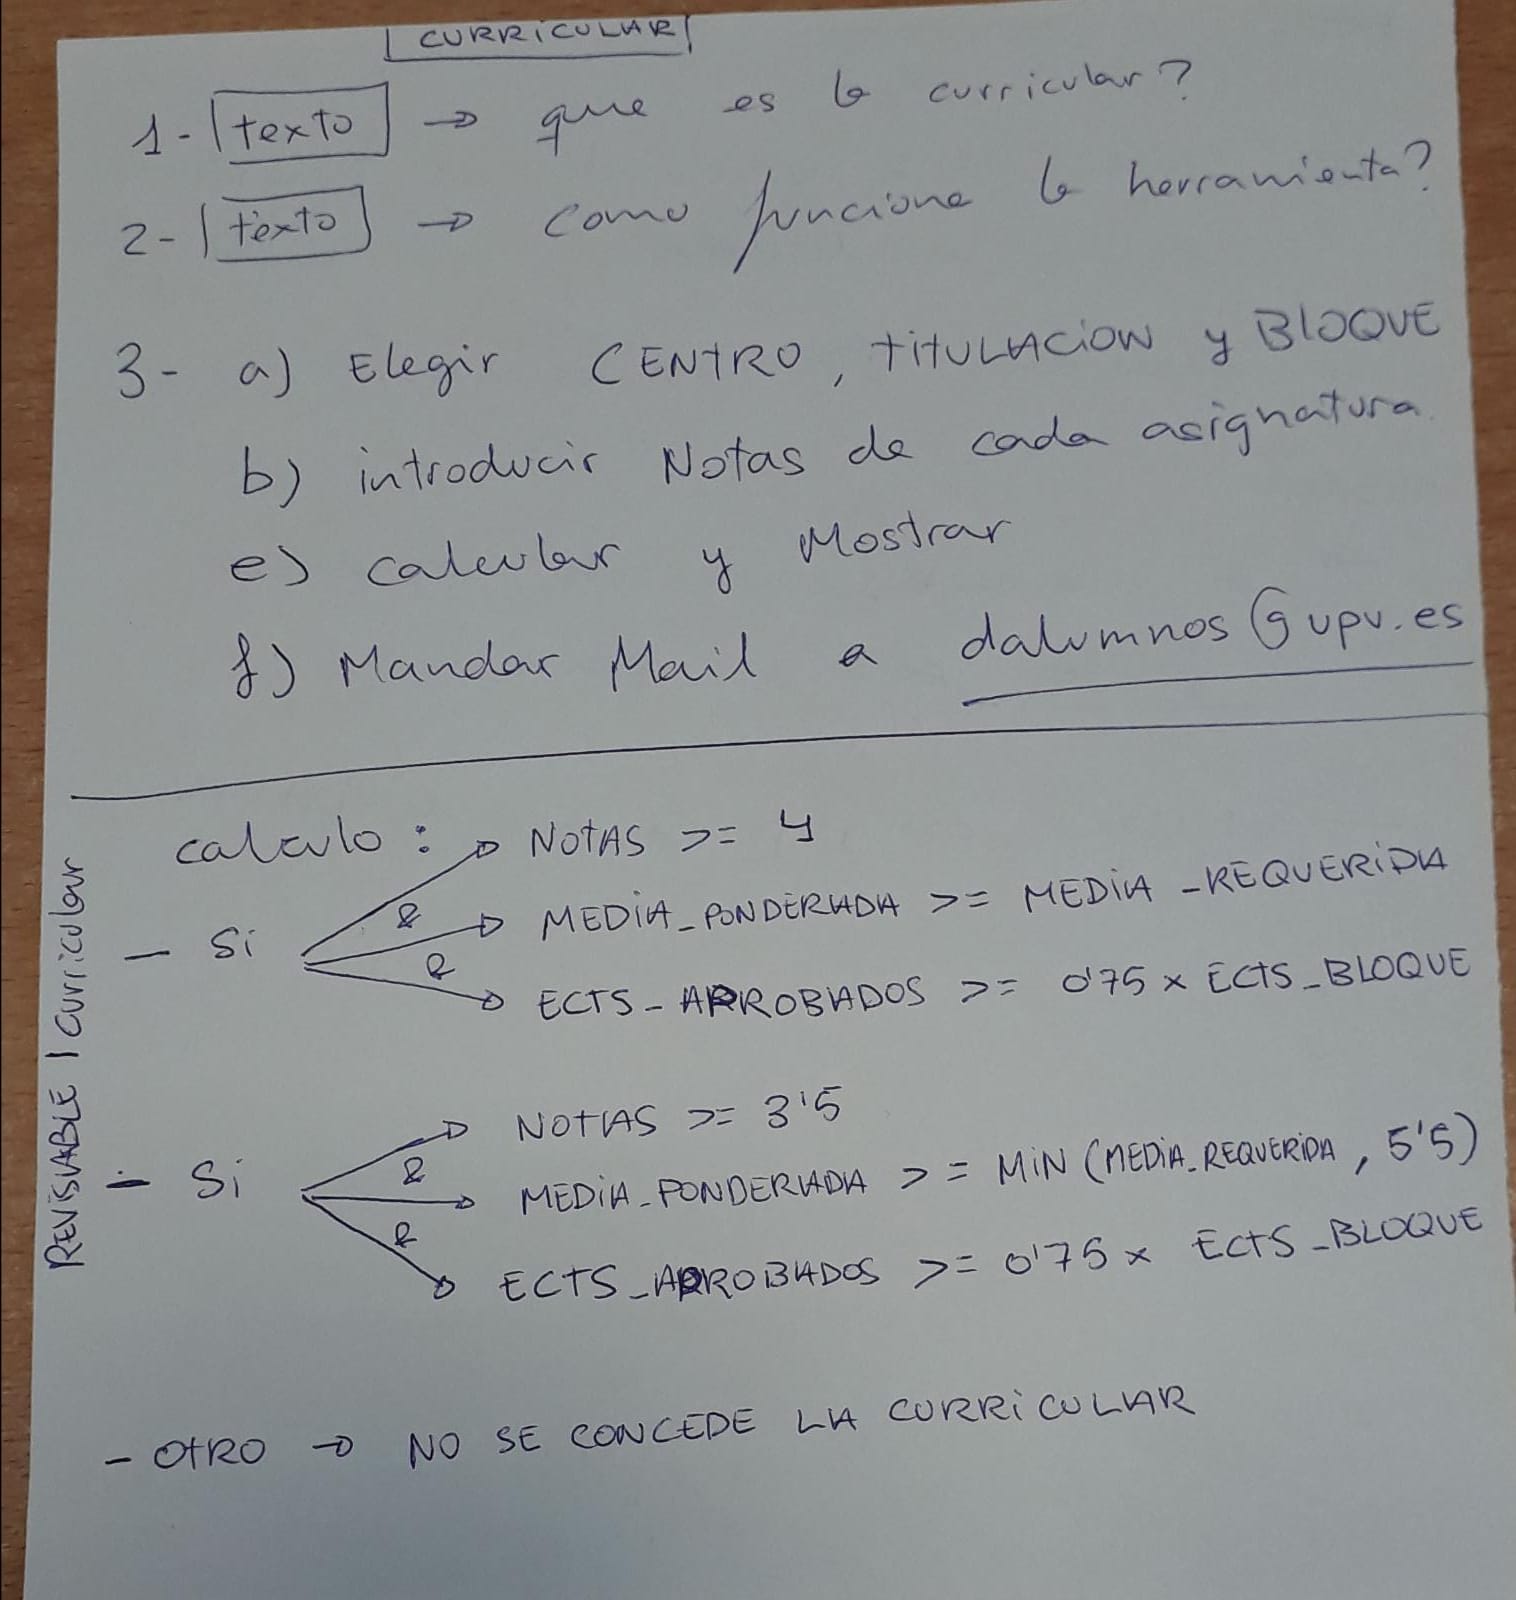 CURRiCULAR
1- texto → que es la curricular?
2- texto → como funciona la herramienta?
3- a) Elegir CENTRO, TITULACION y BLOQUE
b) introducir Notas de cada asignatura.
e) calcular y Mostrar
f) Mandar Mail a dalumnos@upv.es
calculo:
REVISABLE | Curricular
- Si
→ NOTAS >= 4
& → MEDIA_PONDERADA >= MEDIA_REQUERIDA
& → ECTS_APROBADOS >= 0'75 x ECTS_BLOQUE
- Si
→ NOTAS >= 3'5
& → MEDIA_PONDERADA >= MIN (MEDIA_REQUERIDA, 5'5)
& → ECTS_APROBADOS >= 0'75 x ECTS_BLOQUE
- OTRO → NO SE CONCEDE LA CURRiCULAR